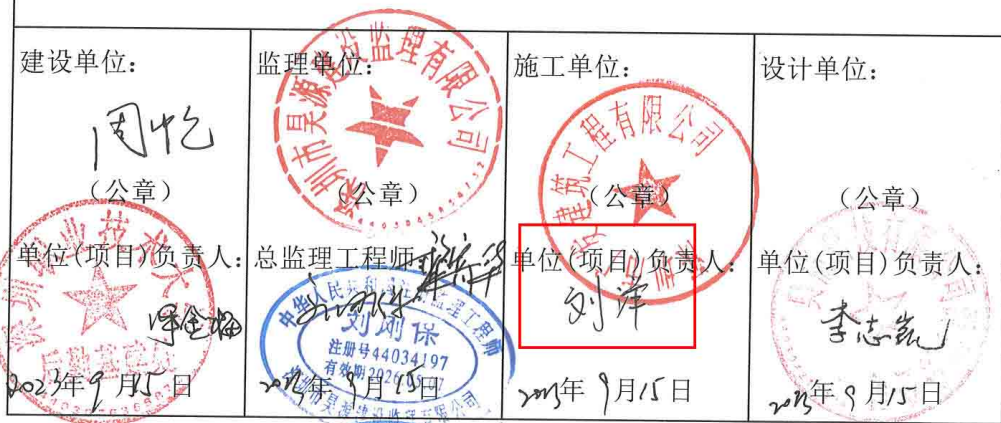 建设单位:
周忆
(公章)
单位(项目)负责人:
2023年9月15日
监理单位:
深圳市昊源建设监理有限公司
(公章)
总监理工程师
中华人民共和国注册监理工程师
刘刚保
注册号44034197
有效期2026.05.07
深圳市昊源建设监理有限公司
2023年9月15日
施工单位:
建筑工程有限公司
(公章)
单位(项目)负责人:
刘萍
2023年9月15日
设计单位:
(公章)
单位(项目)负责人:
李志凯
2023年9月15日